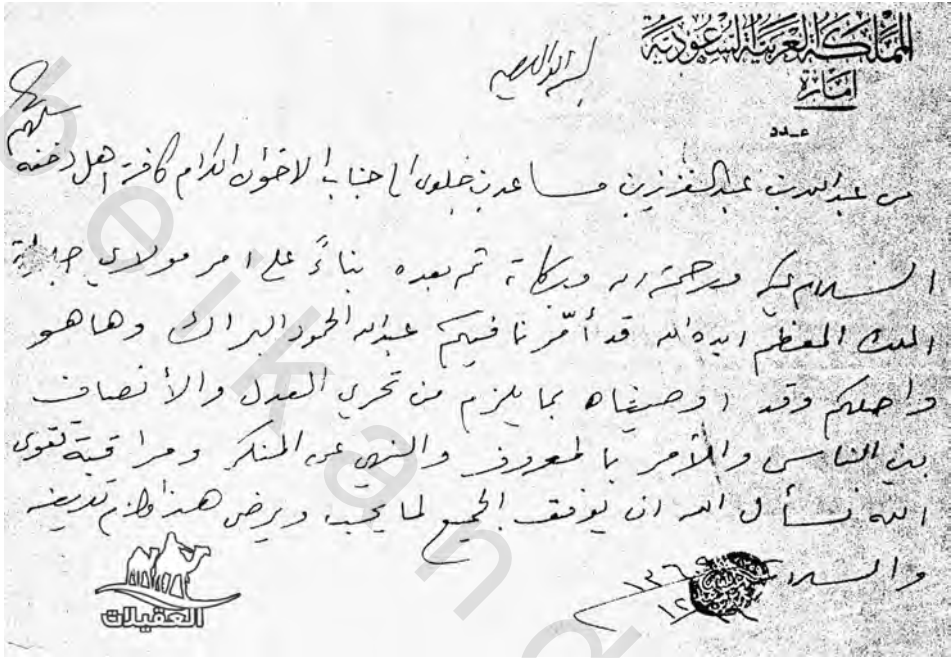 المملكة العربية السعودية
امارة
عدد
بسم الله الرحمن الرحيم
من عبد الله بن عبد العزيز بن مساعد بن جلوي الى جناب الاخوان الكرام كافة اهل دخنه سلمهم
السلام عليكم ورحمة الله وبركاته ثم بعده بناءً على امر مولاي جلالة
الملك المعظم ايده الله قد أمّرنا فيكم عبد الله الحمود البراك وها هو
واصلكم وقد اوصيناه بما يلزم من تحري العدل والأنصاف
بين الناس والأمر بالمعروف والنهي عن المنكر ومراقبة تقوى
الله نسأل الله ان يوفق الجميع لما يحب ويرضى هذا مالزم تعريفه
والسلام
١٣٦٩
١٢
العقيلات
beikan